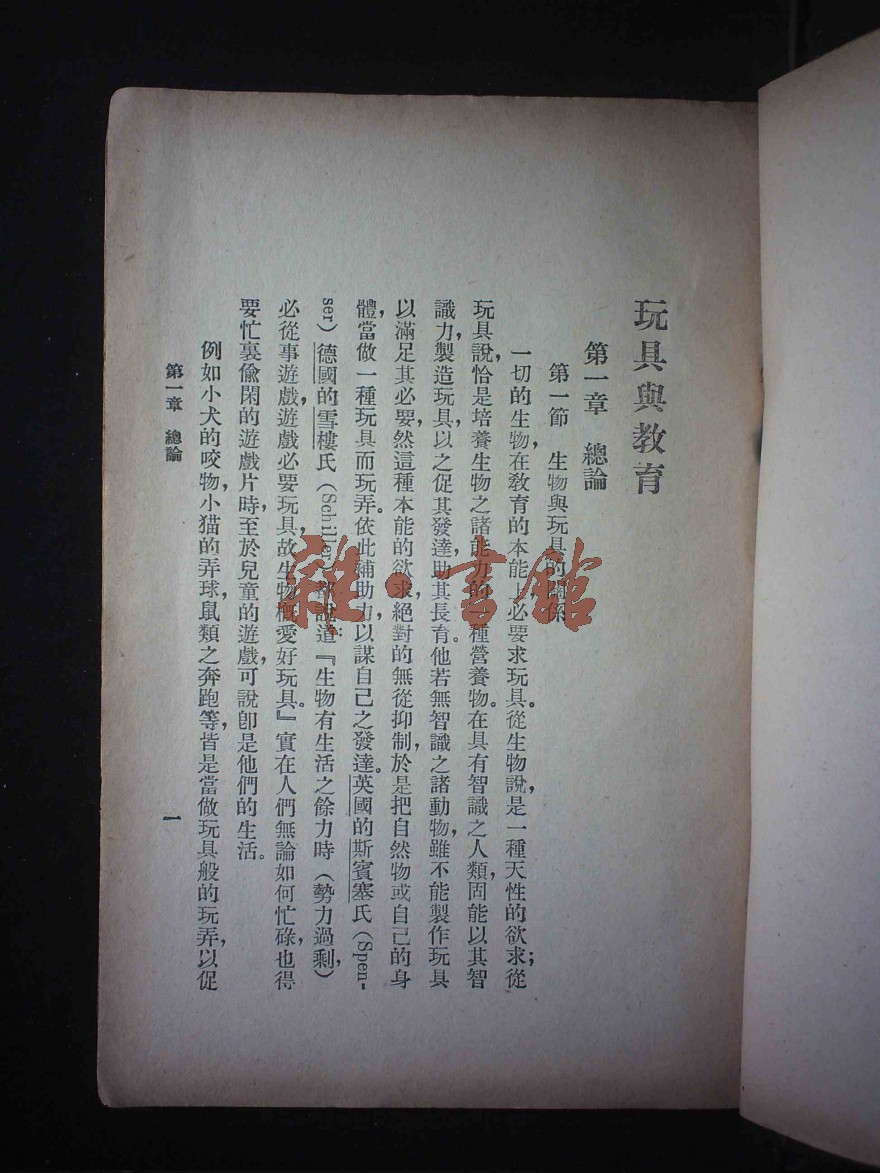 玩具與教育
第一章　總論
第一節　生物與玩具的關係
一切的生物，在教育的本能上必要求玩具。從生物說，是一種天性的欲求；從
玩具說，恰是培養生物之諸能力的一種營養物。在具有智識之人類，固能以其智
識力，製造玩具，以之促其發達，助其長育。他若無智識之諸動物，雖不能製作玩具
以滿足其必要，然這種本能的欲求，絕對的無從抑制，於是把自然物或自己的身
體，當做一種玩具而玩弄。依此補助力，以謀自己之發達。英國的斯賓塞氏（Spen-
ser）德國的雪樓氏（Schiller）都說道：『生物有生活之餘力時（勢力過剩），
必從事遊戲，遊戲必要玩具，故生物概愛好玩具。』實在人們無論如何忙碌，也得
要忙裏偸閑的遊戲片時，至於兒童的遊戲，可說卽是他們的生活。
例如小犬的咬物，小猫的弄球，鼠類之奔跑等，皆是當做玩具般的玩弄，以促
第一章　總論
一
雜·書館